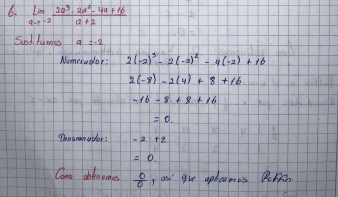 6. Lim 2a³ - 2a² - 4a + 16
a → -2 a + 2
Sustituimos a = -2
Numerador: 2(-2)³ - 2(-2)² - 4(-2) + 16
2(-8) - 2(4) + 8 + 16
-16 - 8 + 8 + 16
= 0.
Denominador: -2 + 2
= 0.
Como obtenemos 0/0, así que aplicamos Ruffini